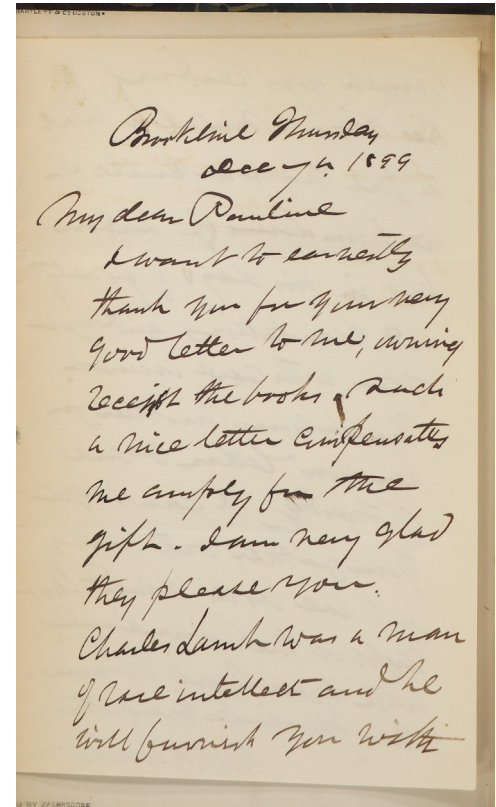 BARTLETT & CO BOSTON
Brookline Thursday
Dec 7th 1899
My dear Pauline
I want to earnestly
thank you for your very
good letter to me, owning
receipt the books. Such
a nice letter compensates
me amply for the
gift. I am very glad
they please you.
Charles Lamb was a man
of rare intellect and he
will furnish you with